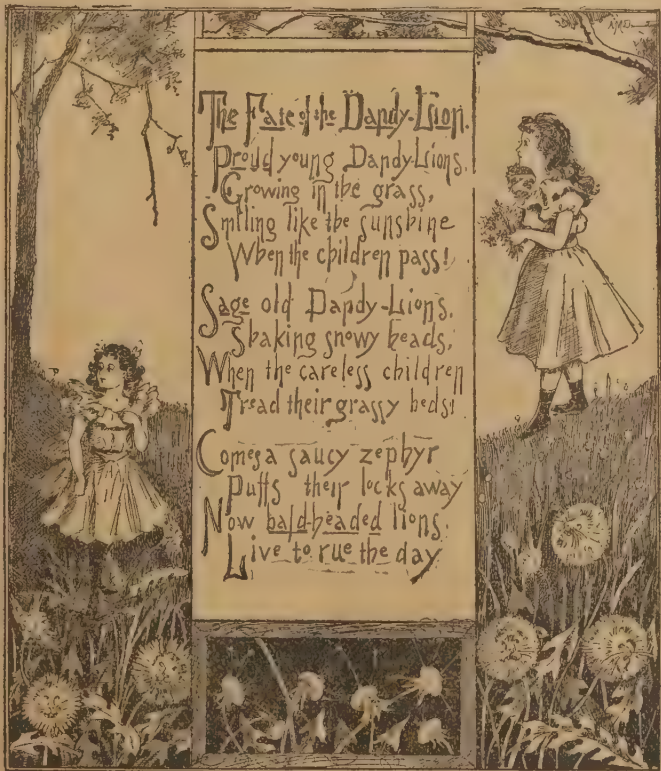 AMD
The Fate of the Dandy-Lion.
Proud young Dandy-Lions.
Growing in the grass,
Smiling like the sunshine
When the children pass!
Sage old Dandy-Lions.
Shaking snowy heads,
When the careless children
Tread their grassy beds!
Comes a saucy zephyr
Puffs their locks away
Now bald-headed lions.
Live to rue the day